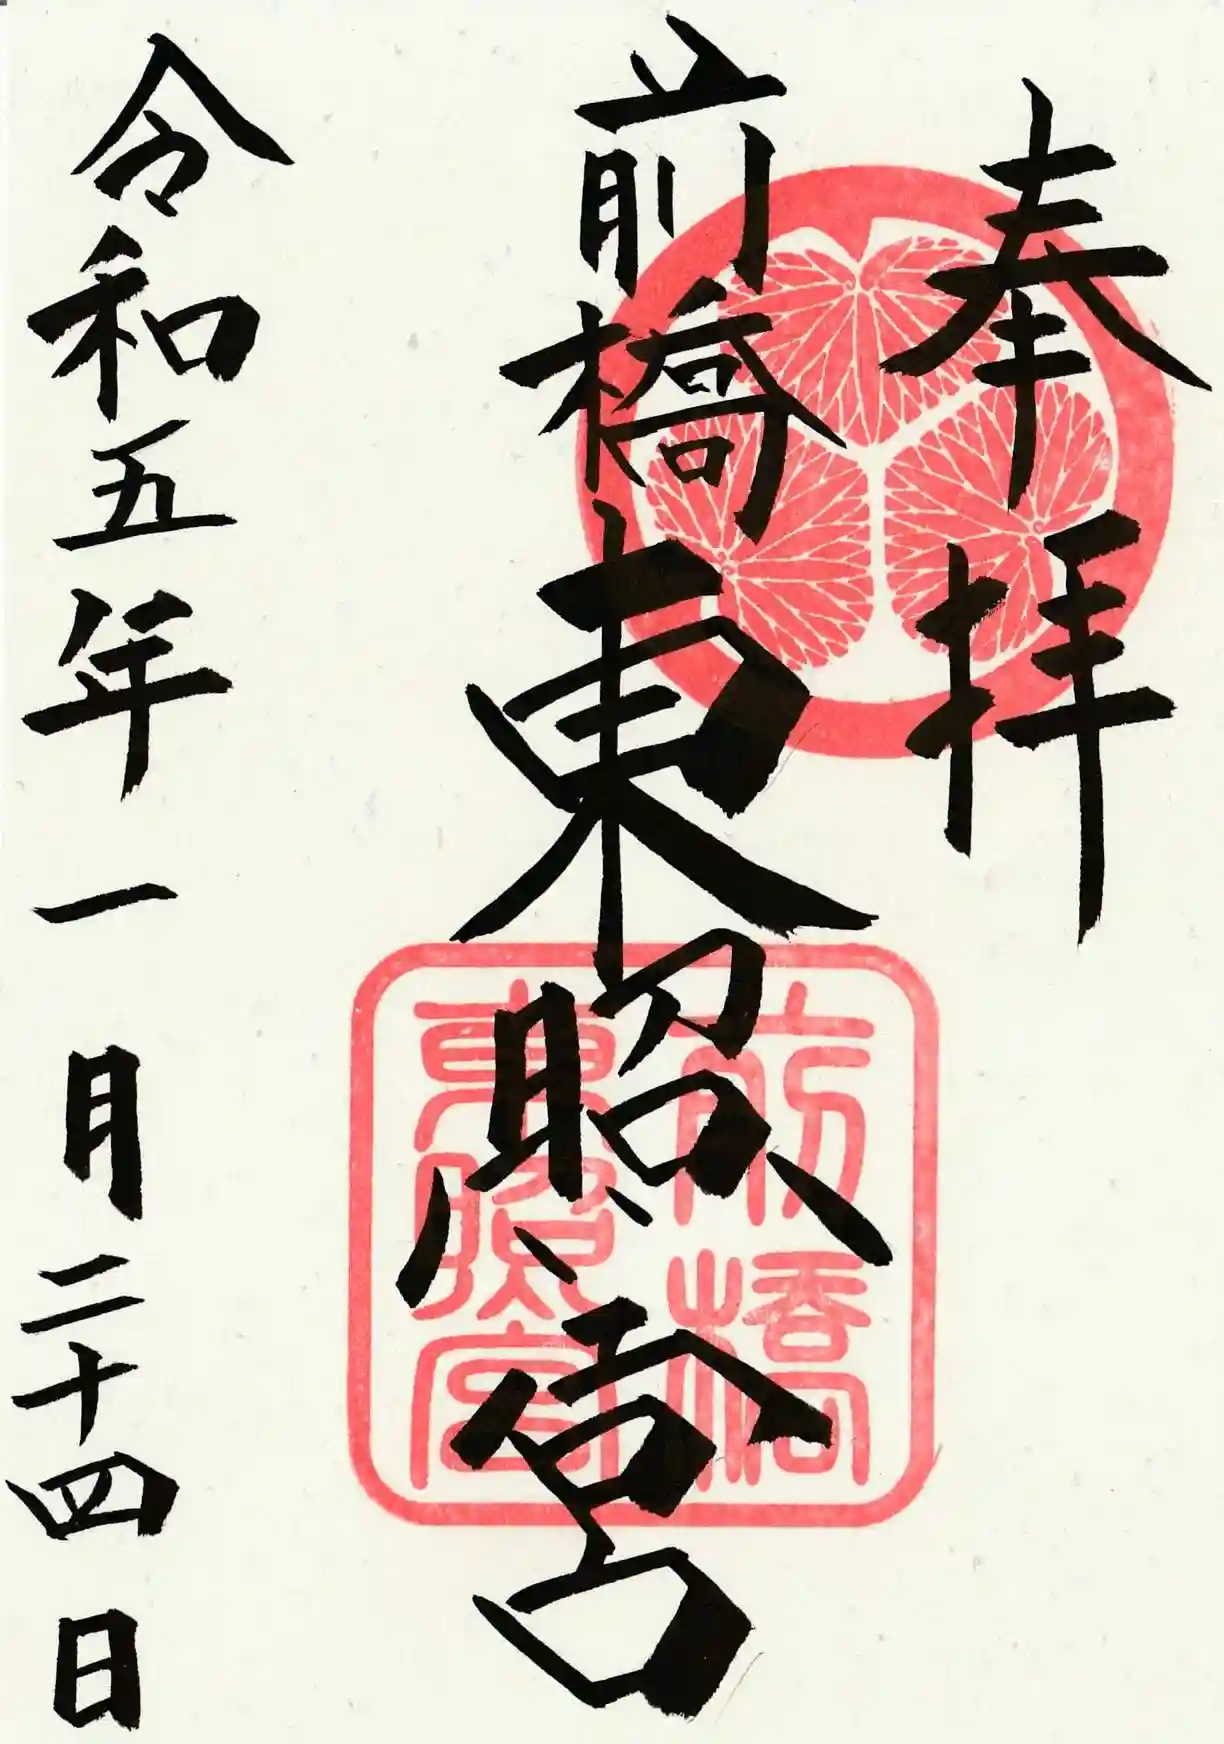 奉拝
前橋東照宮
前橋
東照宮
令和五年一月二十四日